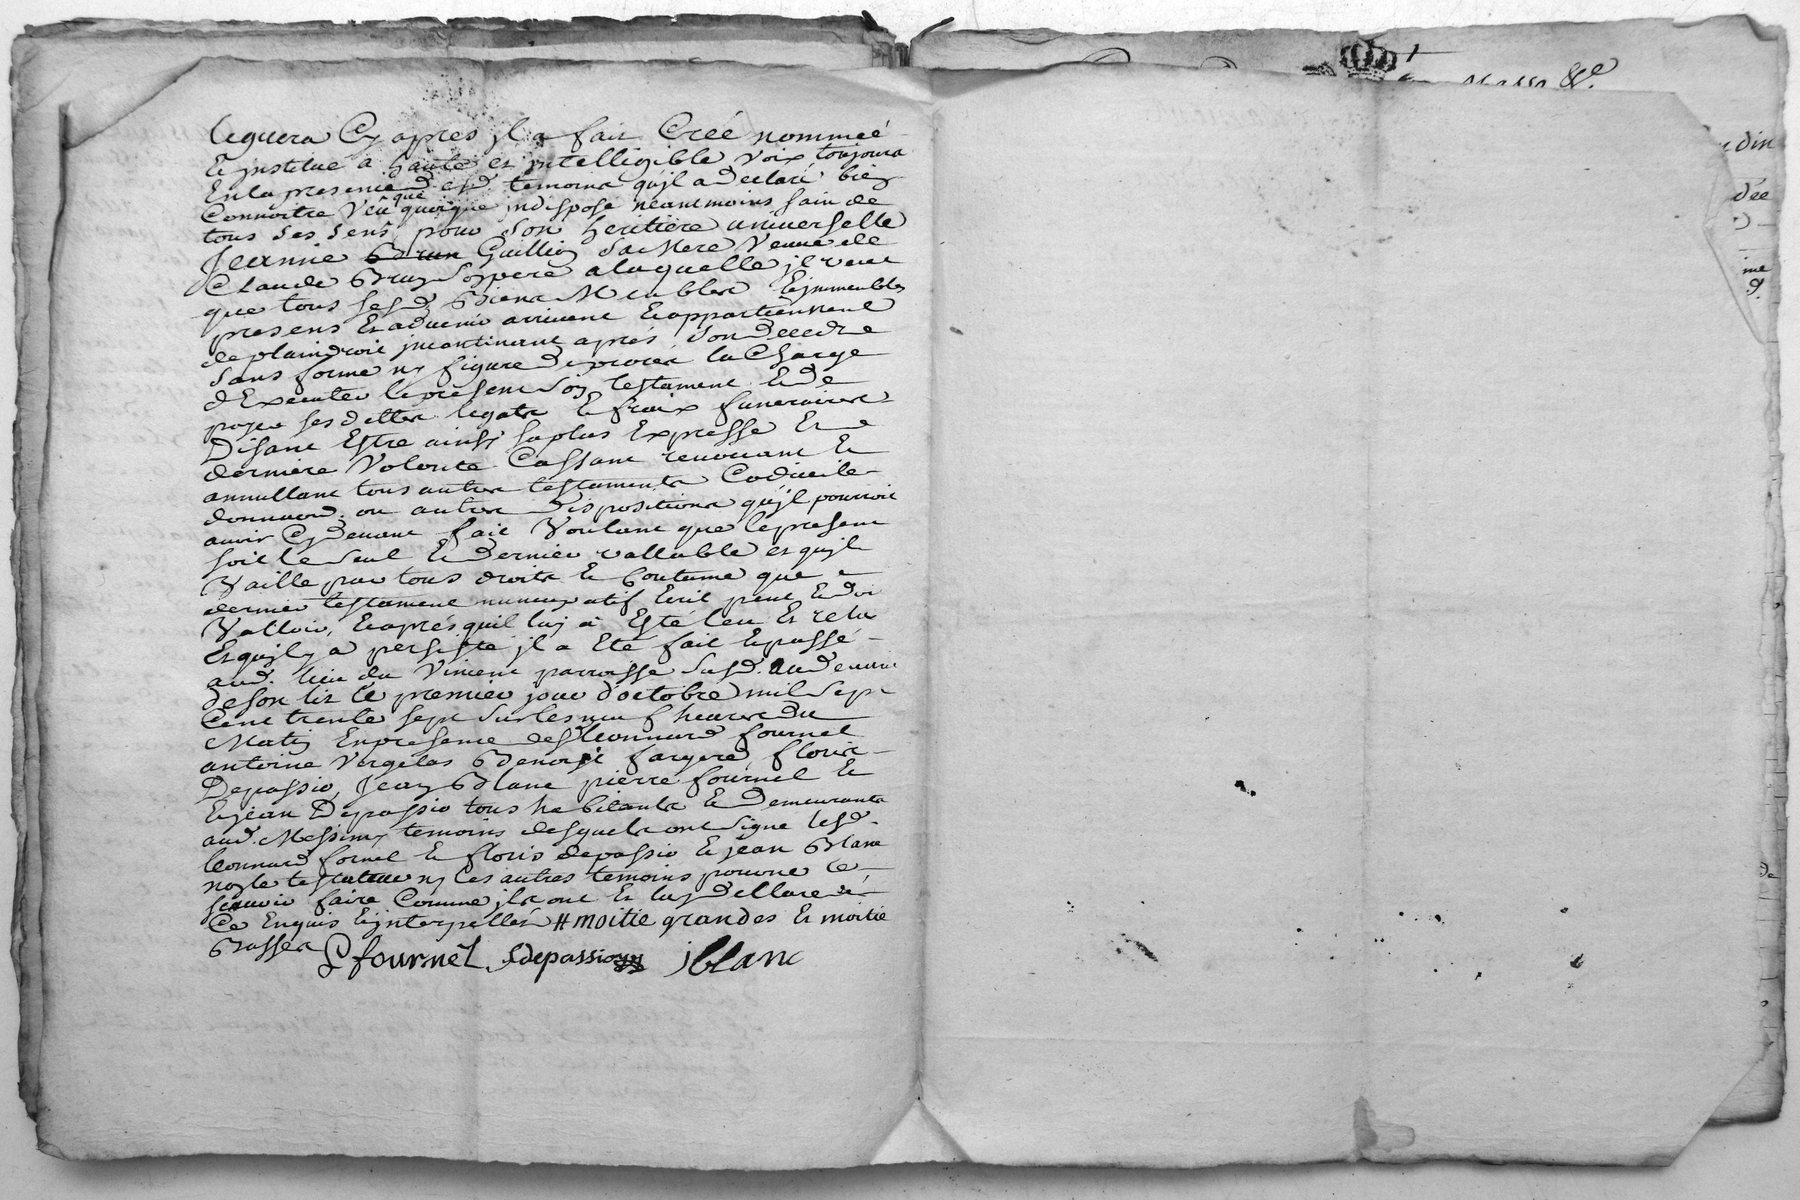 leguera Cy apres jl a fait Créé nommeé
Et jnstitué a haute et jntelligible Voix toujours
En la presence desd. temoins quil a declaré bien
Connoitre Veû que quoique jndisposé néantmoins sain de
tous ses sens pour Son heritiere universelle
Jeanne Brun Guillin Sa Mere Veuve de
Claude Brun Son pere a laquelle jl veut
que tous sesd. Biens Meubles Et jmmeubles
presens Et advenir arrivent Et appartiennent
de plain droit jncontinent aprés Son decedz
Sans forme ny figure de procés a la Charge
d'Executer le present Son testament Et de
payer ses dettes legats Et fraix funeraires
Disant Estre ainsy sa plus Expresse Et
derniere Volonté Cassant revocant Et
annullant tous autres testaments Codicile
donnaon. ou autres dispositions qu'jl pourroit
avoir Cy devant fait Voulant que le present
soit le seul Et dernier vallable et qujl
Vaille par tous droits Et Coutume que
dernier testament nuncupatif Ecrit peut Et doit
Valloir, Et aprés quil luy a Esté leu Et relu
Et qujl y a persisté jl a Eté fait Et passé
aud. lieu du Vincent parroisse Susd. Au devant
de son lit le premier jour d'octobre mil Sept
Cent trente sept Sur les neuf heures du
Matin En presence des leonnard fournel
antoine Vergelas Benoist fargere, floris
Depassio, Jean Blanc pierre fournel Et
Et jean Depassio tous habitants Et demeurants
aud. Messimy temoins desquels ont signé lesd.
leonnard fornel Et floris depassio Et jean Blanc
non le testateur ny les autres temoins pour ne le
scavoir faire Comme jls ont Et luy declaré
de Ce Enquis Et jnterpellés # moitie grandes Et moitie
Basses
L fournel fdepassio jblanc